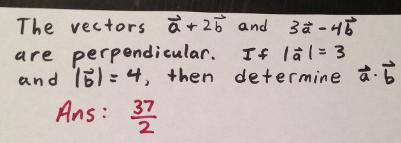 The vectors a⃗ + 2b⃗ and 3a⃗ - 4b⃗
are perpendicular. If |a⃗| = 3
and |b⃗| = 4, then determine a⃗ · b⃗
Ans: 37/2